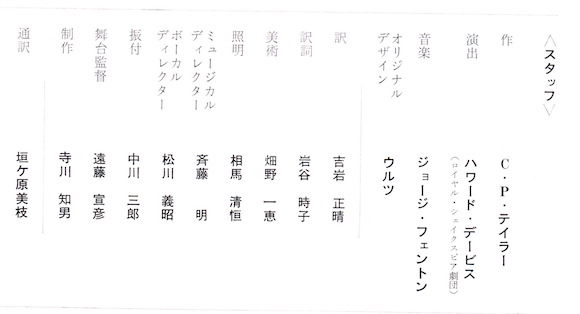 〈スタッフ〉
作　C・P・テイラー
演出　ハワード・デービス
（ロイヤル・シェイクスピア劇団）
音楽　ジョージ・フェントン
オリジナル
デザイン　ウルツ
訳　吉岩　正晴
訳詞　岩谷　時子
美術　畑野　一恵
照明　相馬　清恒
ミュージカル
ディレクター　斉藤　明
ボーカル
ディレクター　松川　義昭
振付　中川　三郎
舞台監督　遠藤　宣彦
制作　寺川　知男
通訳　垣ケ原美枝